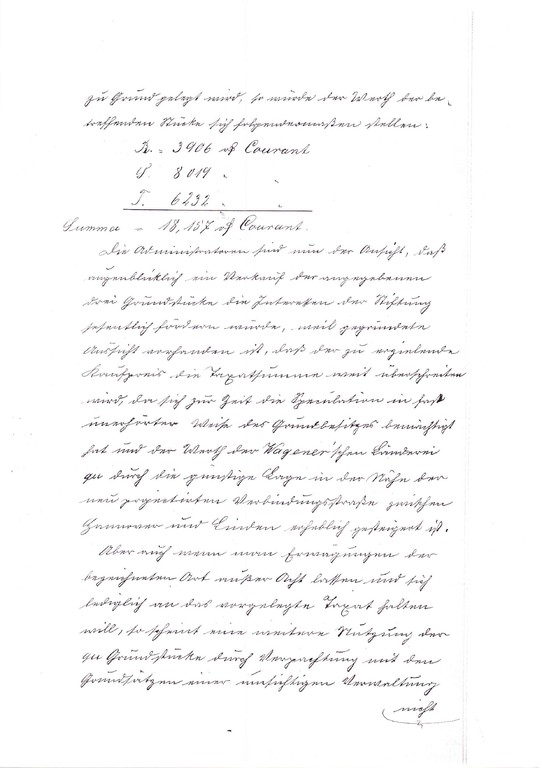 zu Grund gelegt wird, so würde der Werth der be-
treffenden Stücke sich folgendermaßen stellen:
R. = 3906 rf Courant
S. 8019 " "
T. 6232 " "
Summa = 18,157 rf Courant.
Die Administratoren sind nun der Ansicht, daß
augenblicklich ein Verkauf der angegebenen
drei Grundstücke die Interessen der Stiftung
wesentlich fördern würde, weil gegründete
Aussicht vorhanden ist, daß der zu erzielende
Kaufpreis die Taxatsumme weit überschreiten
wird, da sich zur Zeit die Speculation in fast
unerhörter Weise des Grundbesitzes bemächtigt
hat und der Werth der Wagener'schen Länderei
qu durch die günstige Lage in der Nähe der
neu projectirten Verbindungsstraße zwischen
Hannover und Linden erheblich gesteigert ist.
Aber auch wenn man Erwägungen der
bezeichneten Art außer Acht lassen und sich
lediglich an das vorgelegte Taxat halten
will, so scheint eine weitere Nutzung der
qu Grundstücke durch Verpachtung mit den
Grundsätzen einer umsichtigen Verwaltung
nicht